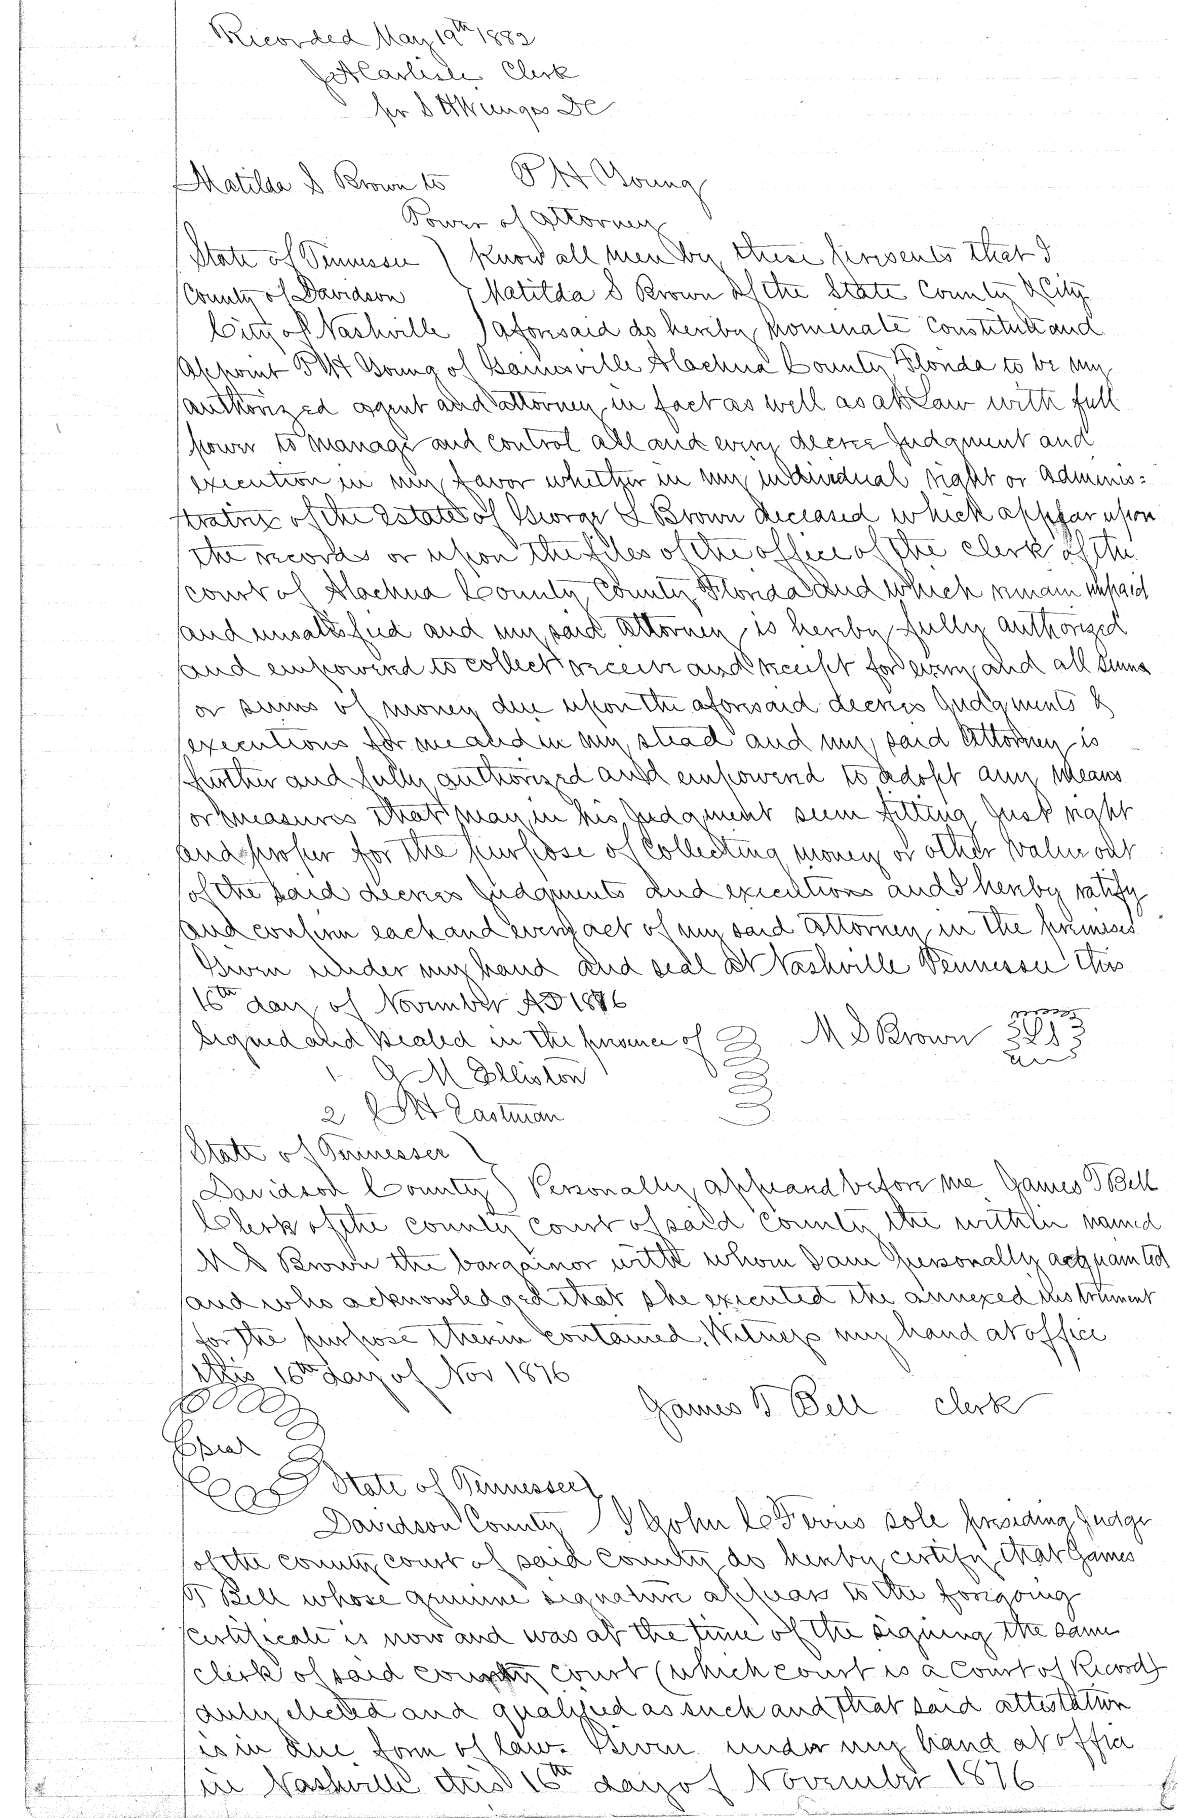 Recorded May 19th 1882
J A Carlisle Clerk
per S H Wienges DC
Matilda S Brown to P H Young
Power of Attorney
State of Tennessee ) Know all men by these presents that I
County of Davidson ) Matilda S Brown of the State County & City
City of Nashville ) aforesaid do hereby nominate constitute and
appoint P H Young of Gainesville Alachua County Florida to be my
authorized agent and attorney in fact as well as at Law with full
power to manage and control all and every decree Judgment and
execution in my favor whether in my individual right or adminis=
tratrix of the Estate of George L Brown deceased which appear upon
the records or upon the files of the office of the clerk of the
court of Alachua County County Florida and which remain unpaid
and unsatisfied and my said attorney is hereby fully authorized
and empowered to collect receive and receipt for every and all sums
or sums of money due upon the aforesaid decrees Judgments &
executions for me and in my stead and my said Attorney is
further and fully authorized and empowered to adopt any means
or measures that may in his Judgment seem fitting Just right
and proper for the purpose of collecting money or other value out
of the said decrees Judgments and executions and I hereby ratify
and confirm each and every act of my said attorney in the premises
Given under my hand and seal at Nashville Tennessee this
16th day of November AD 1876
Signed and sealed in the presence of M S Brown Seal
1 J M Elliston
2 C H Eastman
State of Tennessee )
Davidson County ) Personally appeared before me James T Bell
Clerk of the county court of said county the within named
M S Brown the bargainor with whom I am personally acquainted
and who acknowledged that she executed the annexed instrument
for the purpose therein contained. Witness my hand at office
this 16th day of Nov 1876
James T Bell clerk
Seal
State of Tennessee )
Davidson County I John C Ferris sole presiding Judge
of the county court of said county do hereby certify that James
T Bell whose genuine signature appears to the foregoing
certificate is now and was at the time of the signing the same
clerk of said county court (which court is a court of Record)
duly elected and qualified as such and that said attestation
is in due form of law. Given under my hand at office
in Nashville this 16th day of November 1876